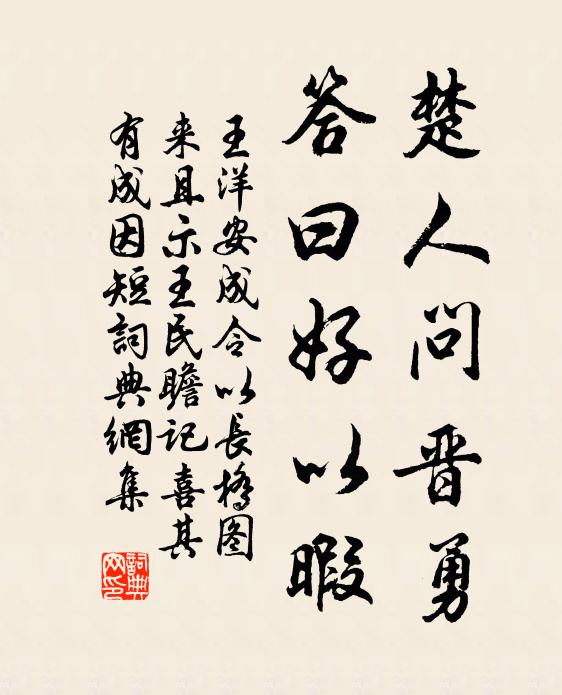 楚人问晋勇
答曰好以暇
王洋安成令以長橋图
来且示王民瞻记喜其
有成因短詞典網集
詞典网印